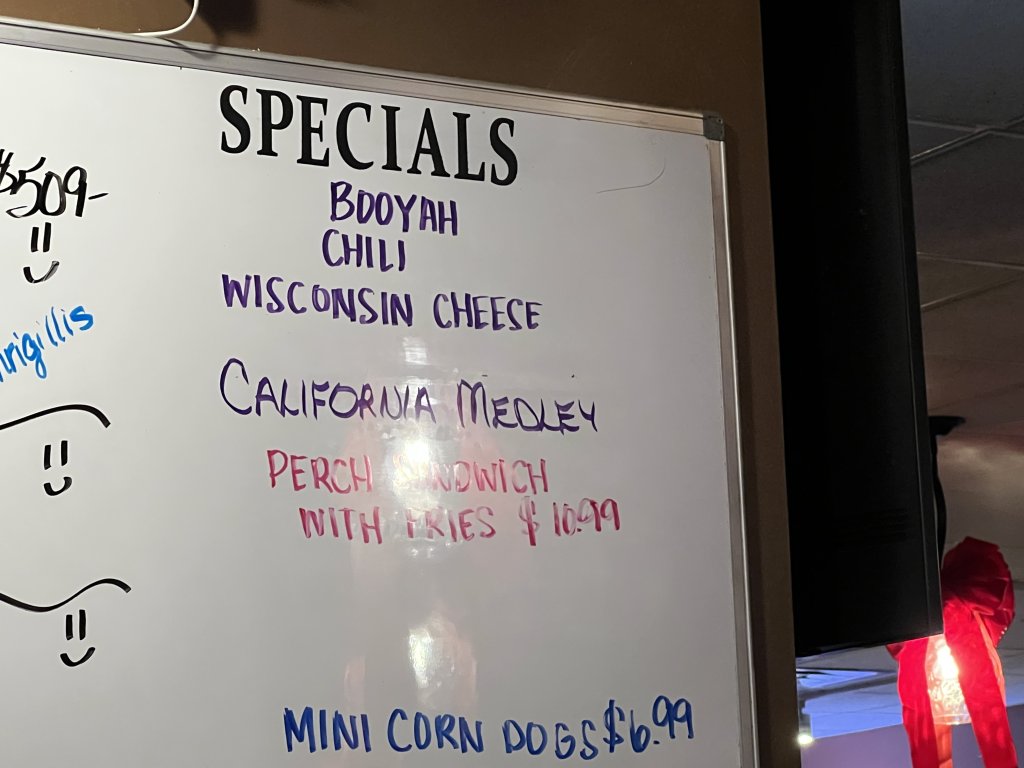 SPECIALS
$509-
BOOYAH
CHILI
WISCONSIN CHEESE
CALIFORNIA MEDLEY
PERCH SANDWICH
WITH FRIES $10.99
MINI CORN DOGS $6.99